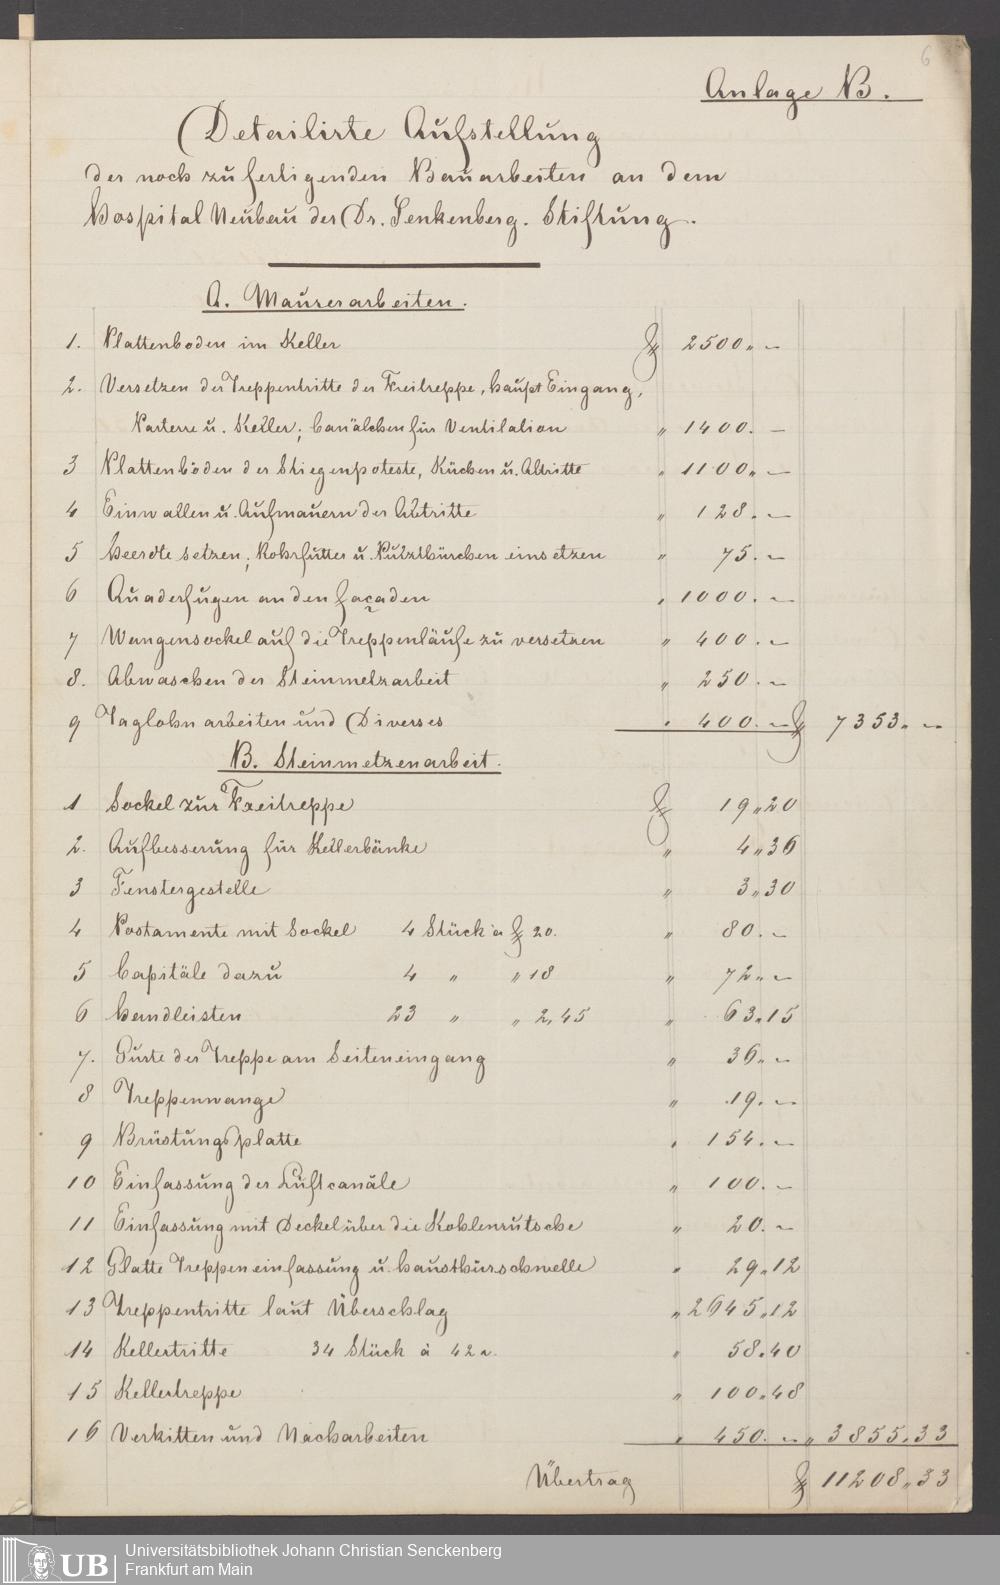 6
Anlage B.
Detailirte Aufstellung
der noch zu fertigenden Bauarbeiten an dem
Hospital Neubau der Dr. Senkenberg. Stiftung.
A. Maurerarbeiten.
1. Plattenboden im Keller f 2500 „ –
2. Versetzen der Treppentritte der Freitreppe, haupt Eingang,
Parterre u. Keller; Canälchen für Ventilation „ 1400. –
3 Plattenböden der Stiegenpoteste, Küchen u. Abtritte „ 1100 „ –
4 Einwallen u. Aufmauern der Abtritte „ 128. –
5 heerdte setzen; Rohrfutter u. Putzthürchen einsetzen „ 75. –
6 Quaderfugen an den façaden „ 1000. –
7 Wangensockel auf die Treppenläufe zu versetzen „ 400. –
8. Abwaschen der Steinmetzarbeit „ 250. –
9 Taglohn arbeiten und Diverses „ 400. – f 7353 „ –
B. Steinmetzenarbeit.
1 Sockel zur Freitreppe f 19 „ 20
2. Aufbesserung für Kellerbänke „ 4 „ 36
3 Fenstergestelle „ 3 „ 30
4 Postamente mit Sockel 4 Stück à f 20. „ 80. –
5 Capitäle dazu 4 „ „ 18 „ 72 „ –
6 handleisten 23 „ „ 2,45 „ 63 „ 15
7. Gurte der Treppe am Seiteneingang „ 36 „ –
8 Treppenwange „ 19. –
9 Brüstungsplatte „ 154. –
10 Einfassung der Luftcanäle „ 100. –
11 Einfassung mit Deckel über die Kohlenrutsche „ 20. –
12 Glatte Treppeneinfassung u. hausthürschwelle „ 29 „ 12
13 Treppentritte laut Überschlag „ 2645 „ 12
14 Kellertritte 34 Stück à 42 „ 58 „ 40
15 Kellertreppe „ 100 „ 48
16 Verkitten und Nacharbeiten „ 450. – „ 3855 „ 33
Übertrag f 11208 „ 33
UB Universitätsbibliothek Johann Christian Senckenberg
Frankfurt am Main